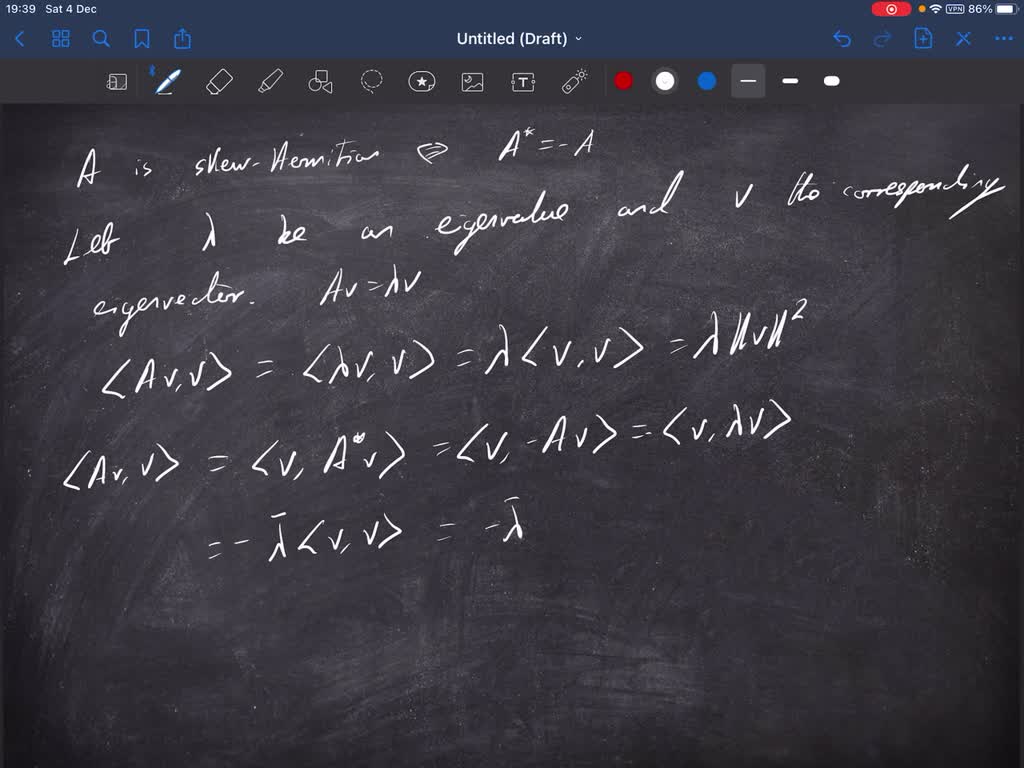 19:39 Sat 4 Dec VPN 86%
Untitled (Draft)
A is skew-Hermitian ⇔ A* = -A
Let λ be an eigenvalue and v the corresponding
eigenvector. Av = λv
⟨Av, v⟩ = ⟨λv, v⟩ = λ⟨v, v⟩ = λ‖v‖²
⟨Av, v⟩ = ⟨v, A*v⟩ = ⟨v, -Av⟩ = ⟨v, λv⟩
= - λ̄⟨v, v⟩ = -λ̄